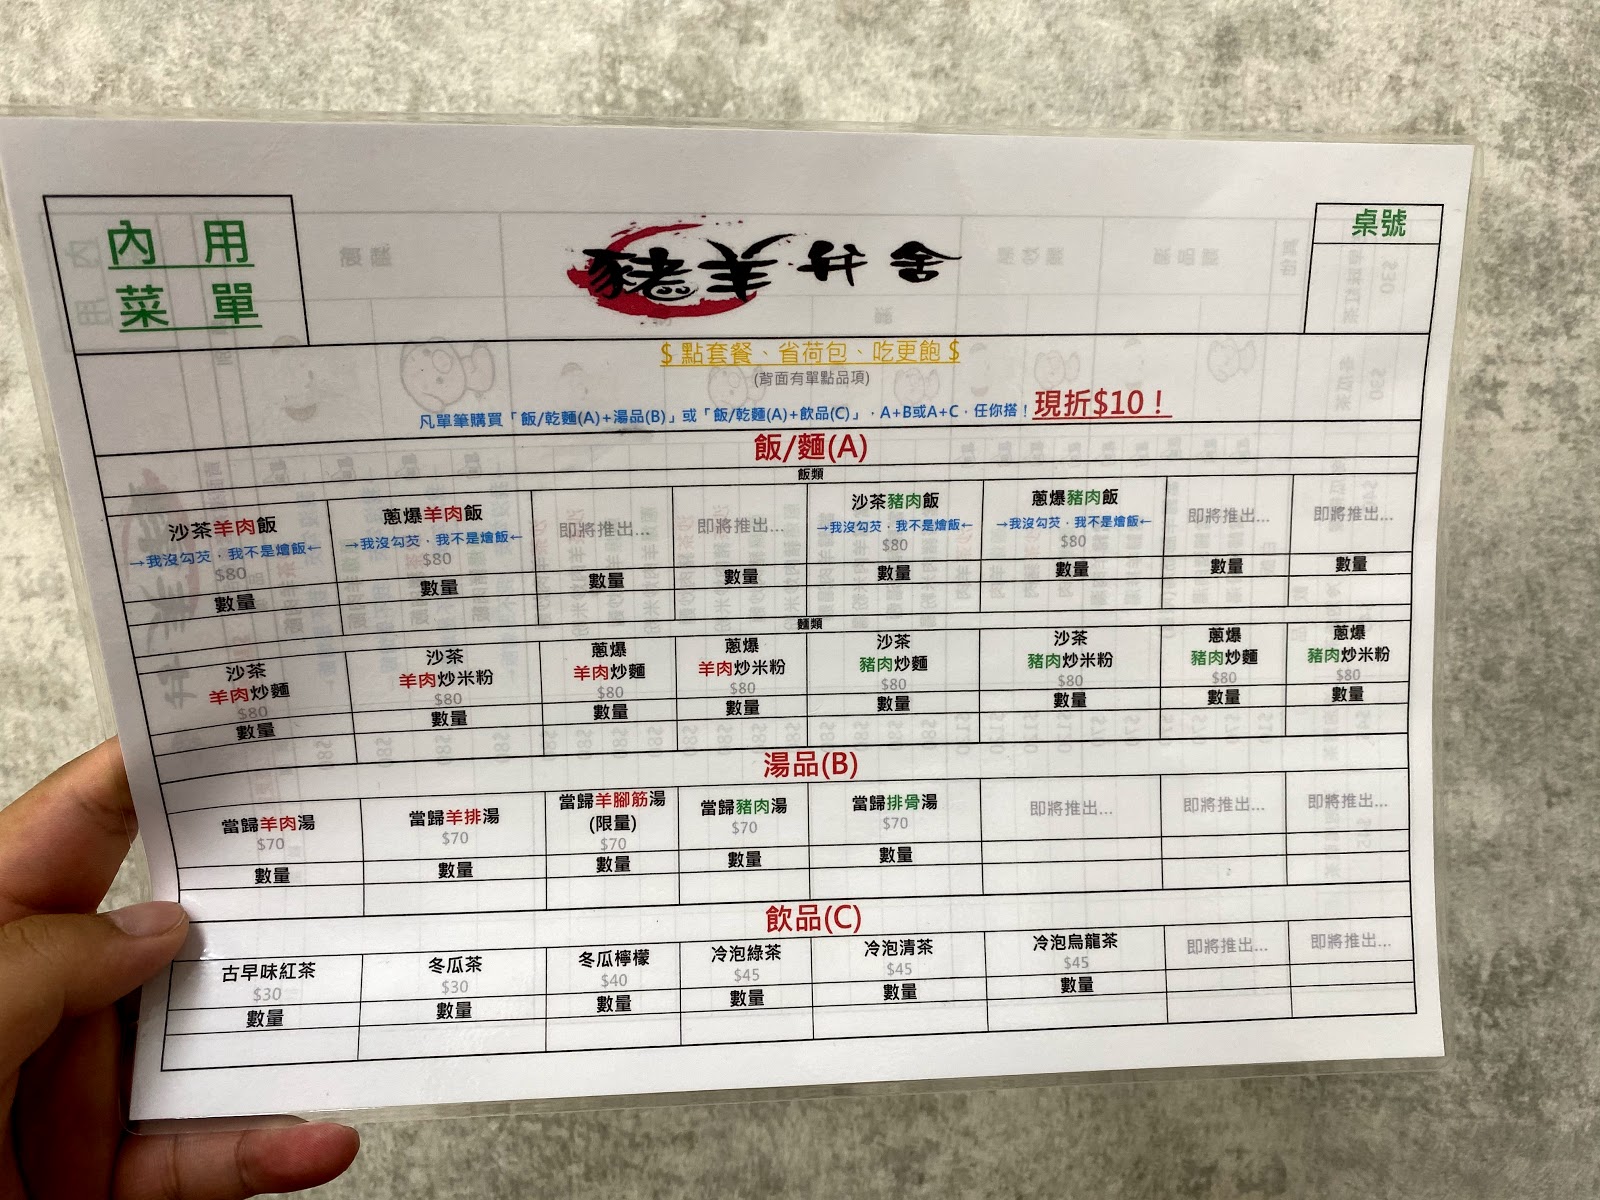 內用
菜單
豬羊弁舍
桌號
$ 點套餐、省荷包、吃更飽 $
(背面有單點品項)
凡單筆購買「飯/乾麵(A)+湯品(B)」或「飯/乾麵(A)+飲品(C)」，A+B或A+C，任你搭！現折$10！
飯/麵(A)
飯類
沙茶羊肉飯
→我沒勾芡，我不是燴飯←
$80
數量
蔥爆羊肉飯
→我沒勾芡，我不是燴飯←
$80
數量
即將推出...
數量
即將推出...
數量
沙茶豬肉飯
→我沒勾芡，我不是燴飯←
$80
數量
蔥爆豬肉飯
→我沒勾芡，我不是燴飯←
$80
數量
即將推出...
數量
即將推出...
數量
麵類
沙茶
羊肉炒麵
$80
數量
沙茶
羊肉炒米粉
$80
數量
蔥爆
羊肉炒麵
$80
數量
蔥爆
羊肉炒米粉
$80
數量
沙茶
豬肉炒麵
$80
數量
沙茶
豬肉炒米粉
$80
數量
蔥爆
豬肉炒麵
$80
數量
蔥爆
豬肉炒米粉
$80
數量
湯品(B)
當歸羊肉湯
$70
數量
當歸羊排湯
$70
數量
當歸羊腳筋湯
(限量)
$70
數量
當歸豬肉湯
$70
數量
當歸排骨湯
$70
數量
即將推出...
即將推出...
即將推出...
飲品(C)
古早味紅茶
$30
數量
冬瓜茶
$30
數量
冬瓜檸檬
$40
數量
冷泡綠茶
$45
數量
冷泡清茶
$45
數量
冷泡烏龍茶
$45
數量
即將推出...
即將推出...